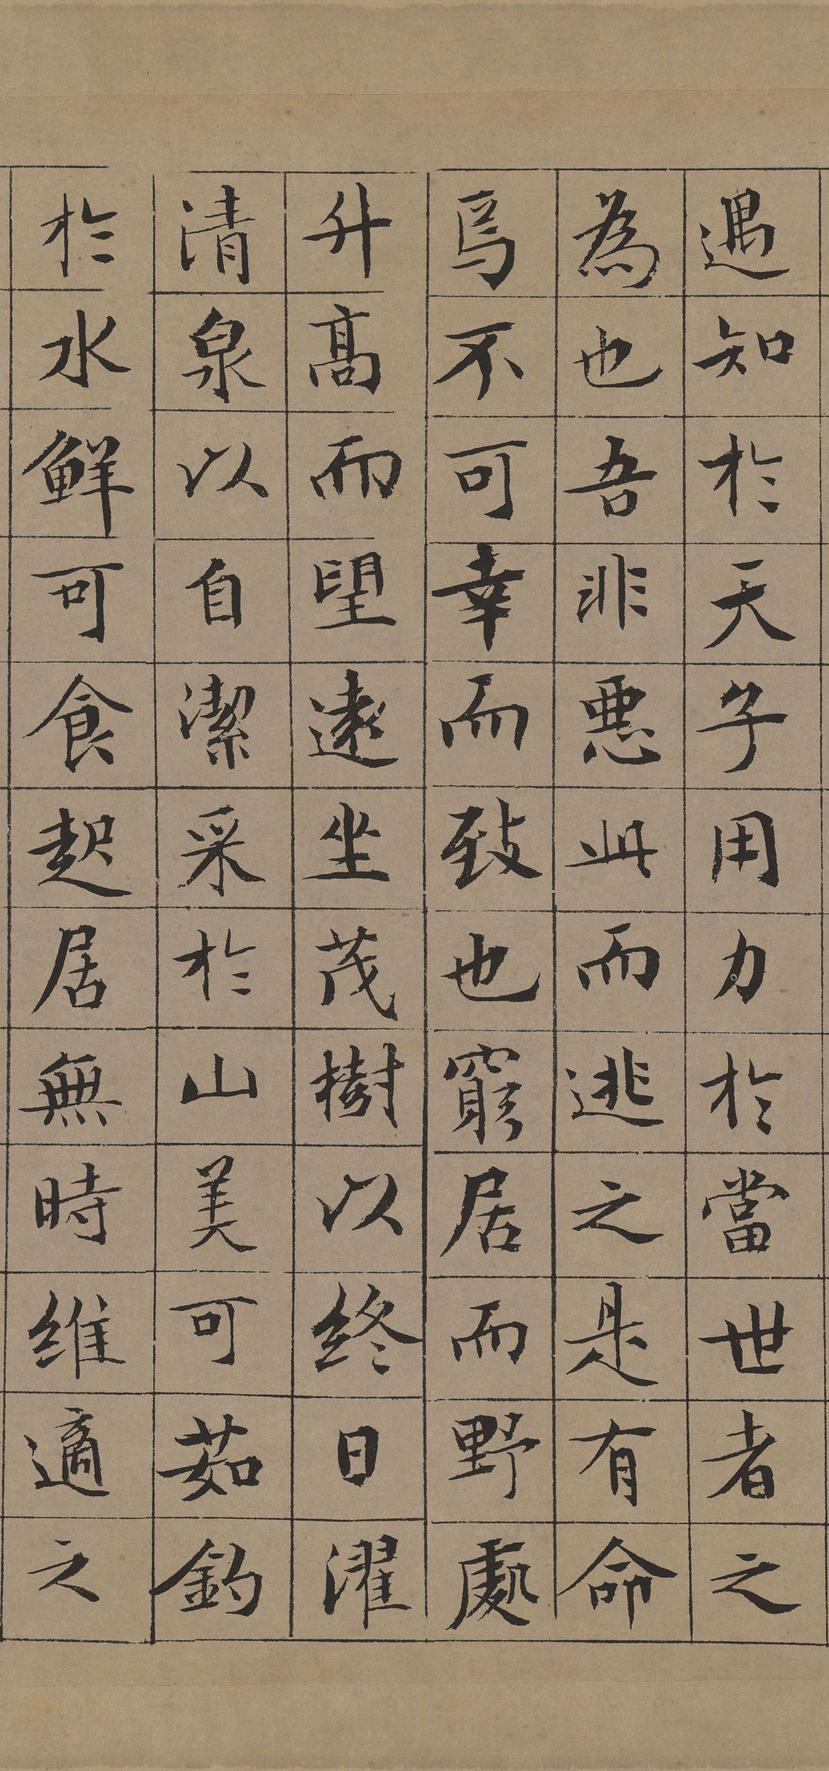 遇知於天子用力於當世者之
為也吾非惡此而逃之是有命
焉不可幸而致也窮居而野處
升高而望遠坐茂樹以終日濯
清泉以自潔采於山美可茹釣
於水鮮可食起居無時維適之